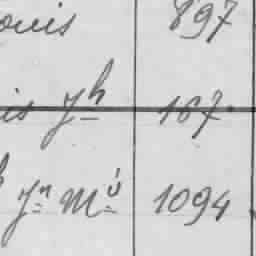 ouis 897
is Jh 167.
Jn Mie 1094